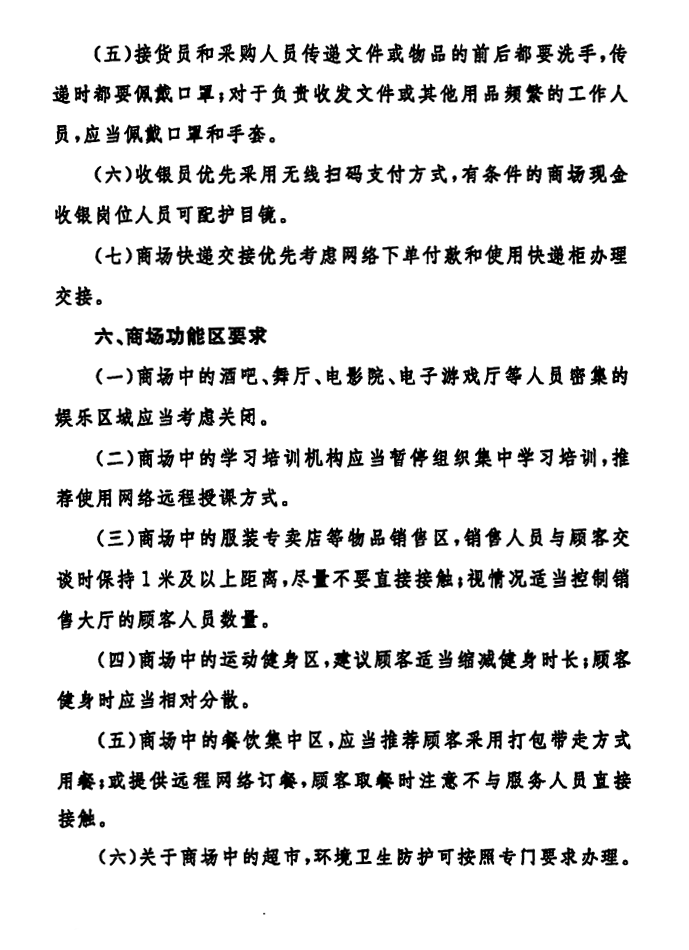 (五)接货员和采购人员传递文件或物品的前后都要洗手,传
递时都要佩戴口罩;对于负责收发文件或其他用品频繁的工作人
员,应当佩戴口罩和手套。
(六)收银员优先采用无线扫码支付方式,有条件的商场现金
收银岗位人员可配护目镜。
(七)商场快递交接优先考虑网络下单付款和使用快递柜办理
交接。
六、商场功能区要求
(一)商场中的酒吧、舞厅、电影院、电子游戏厅等人员密集的
娱乐区域应当考虑关闭。
(二)商场中的学习培训机构应当暂停组织集中学习培训,推
荐使用网络远程授课方式。
(三)商场中的服装专卖店等物品销售区,销售人员与顾客交
谈时保持1米及以上距离,尽量不要直接接触;视情况适当控制销
售大厅的顾客人员数量。
(四)商场中的运动健身区,建议顾客适当缩减健身时长;顾客
健身时应当相对分散。
(五)商场中的餐饮集中区,应当推荐顾客采用打包带走方式
用餐;或提供远程网络订餐,顾客取餐时注意不与服务人员直接
接触。
(六)关于商场中的超市,环境卫生防护可按照专门要求办理。